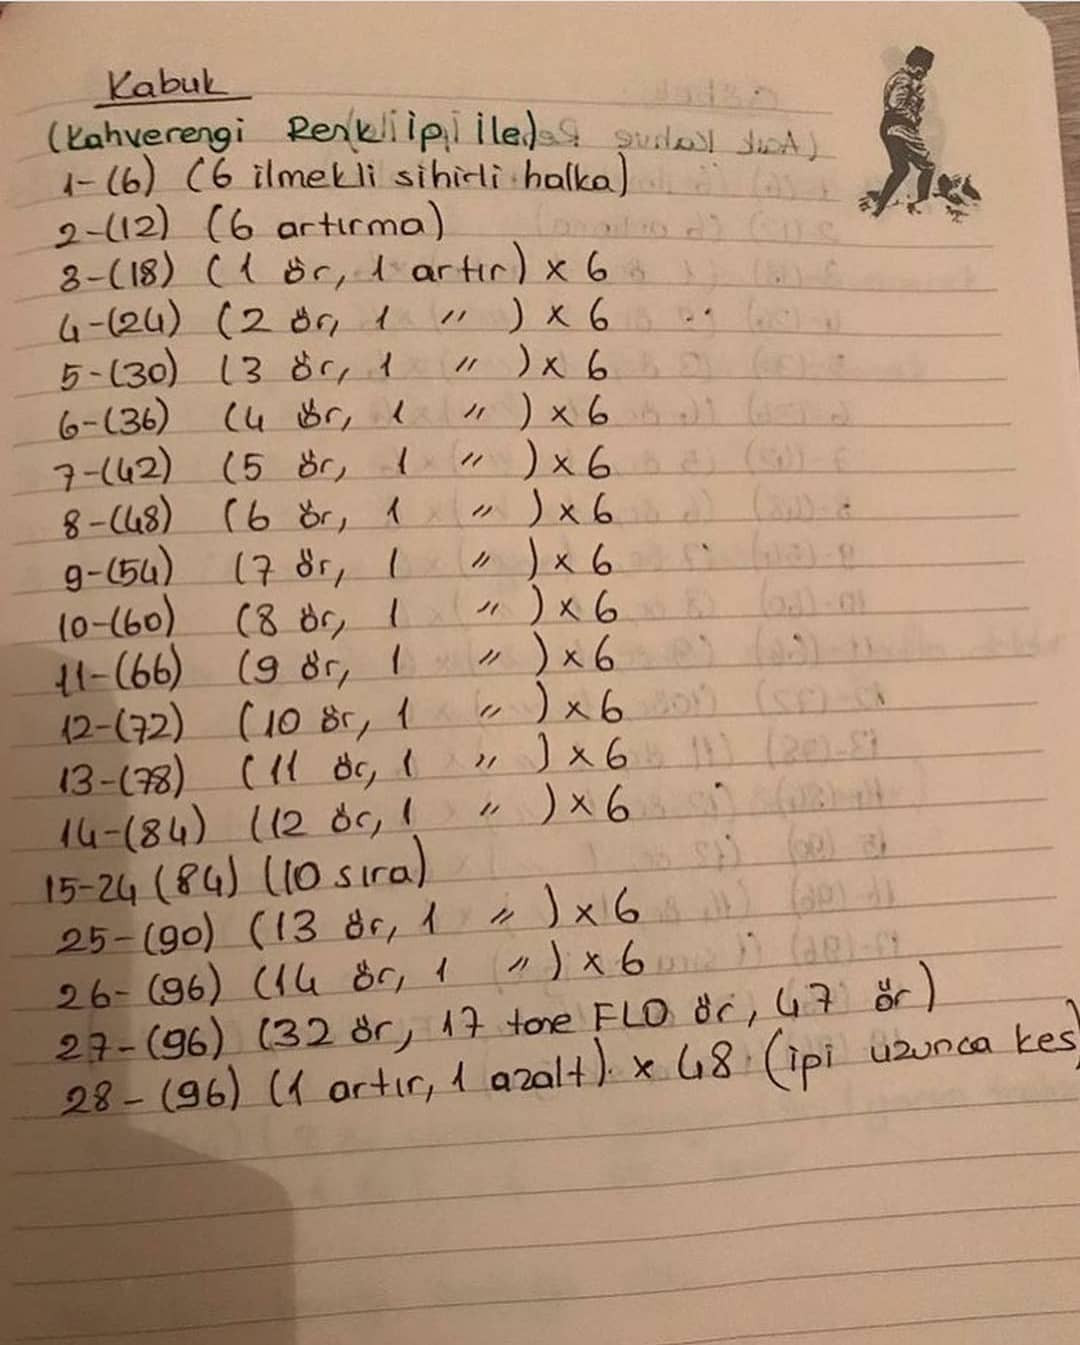 Kabuk
(Kahverengi Renkli ipi ile)
1-(6) (6 ilmekli sihirli halka)
2-(12) (6 artırma)
3-(18) (1 ör, 1 artır) x 6
4-(24) (2 ör, 1 " ) x 6
5-(30) (3 ör, 1 " ) x 6
6-(36) (4 ör, 1 " ) x 6
7-(42) (5 ör, 1 " ) x 6
8-(48) (6 ör, 1 " ) x 6
9-(54) (7 ör, 1 " ) x 6
10-(60) (8 ör, 1 " ) x 6
11-(66) (9 ör, 1 " ) x 6
12-(72) (10 ör, 1 " ) x 6
13-(78) (11 ör, 1 " ) x 6
14-(84) (12 ör, 1 " ) x 6
15-24 (84) (10 sıra)
25-(90) (13 ör, 1 " ) x 6
26-(96) (14 ör, 1 " ) x 6
27-(96) (32 ör, 17 tane FLO ör, 47 ör)
28-(96) (1 artır, 1 azalt) x 48 (ipi uzunca kes)